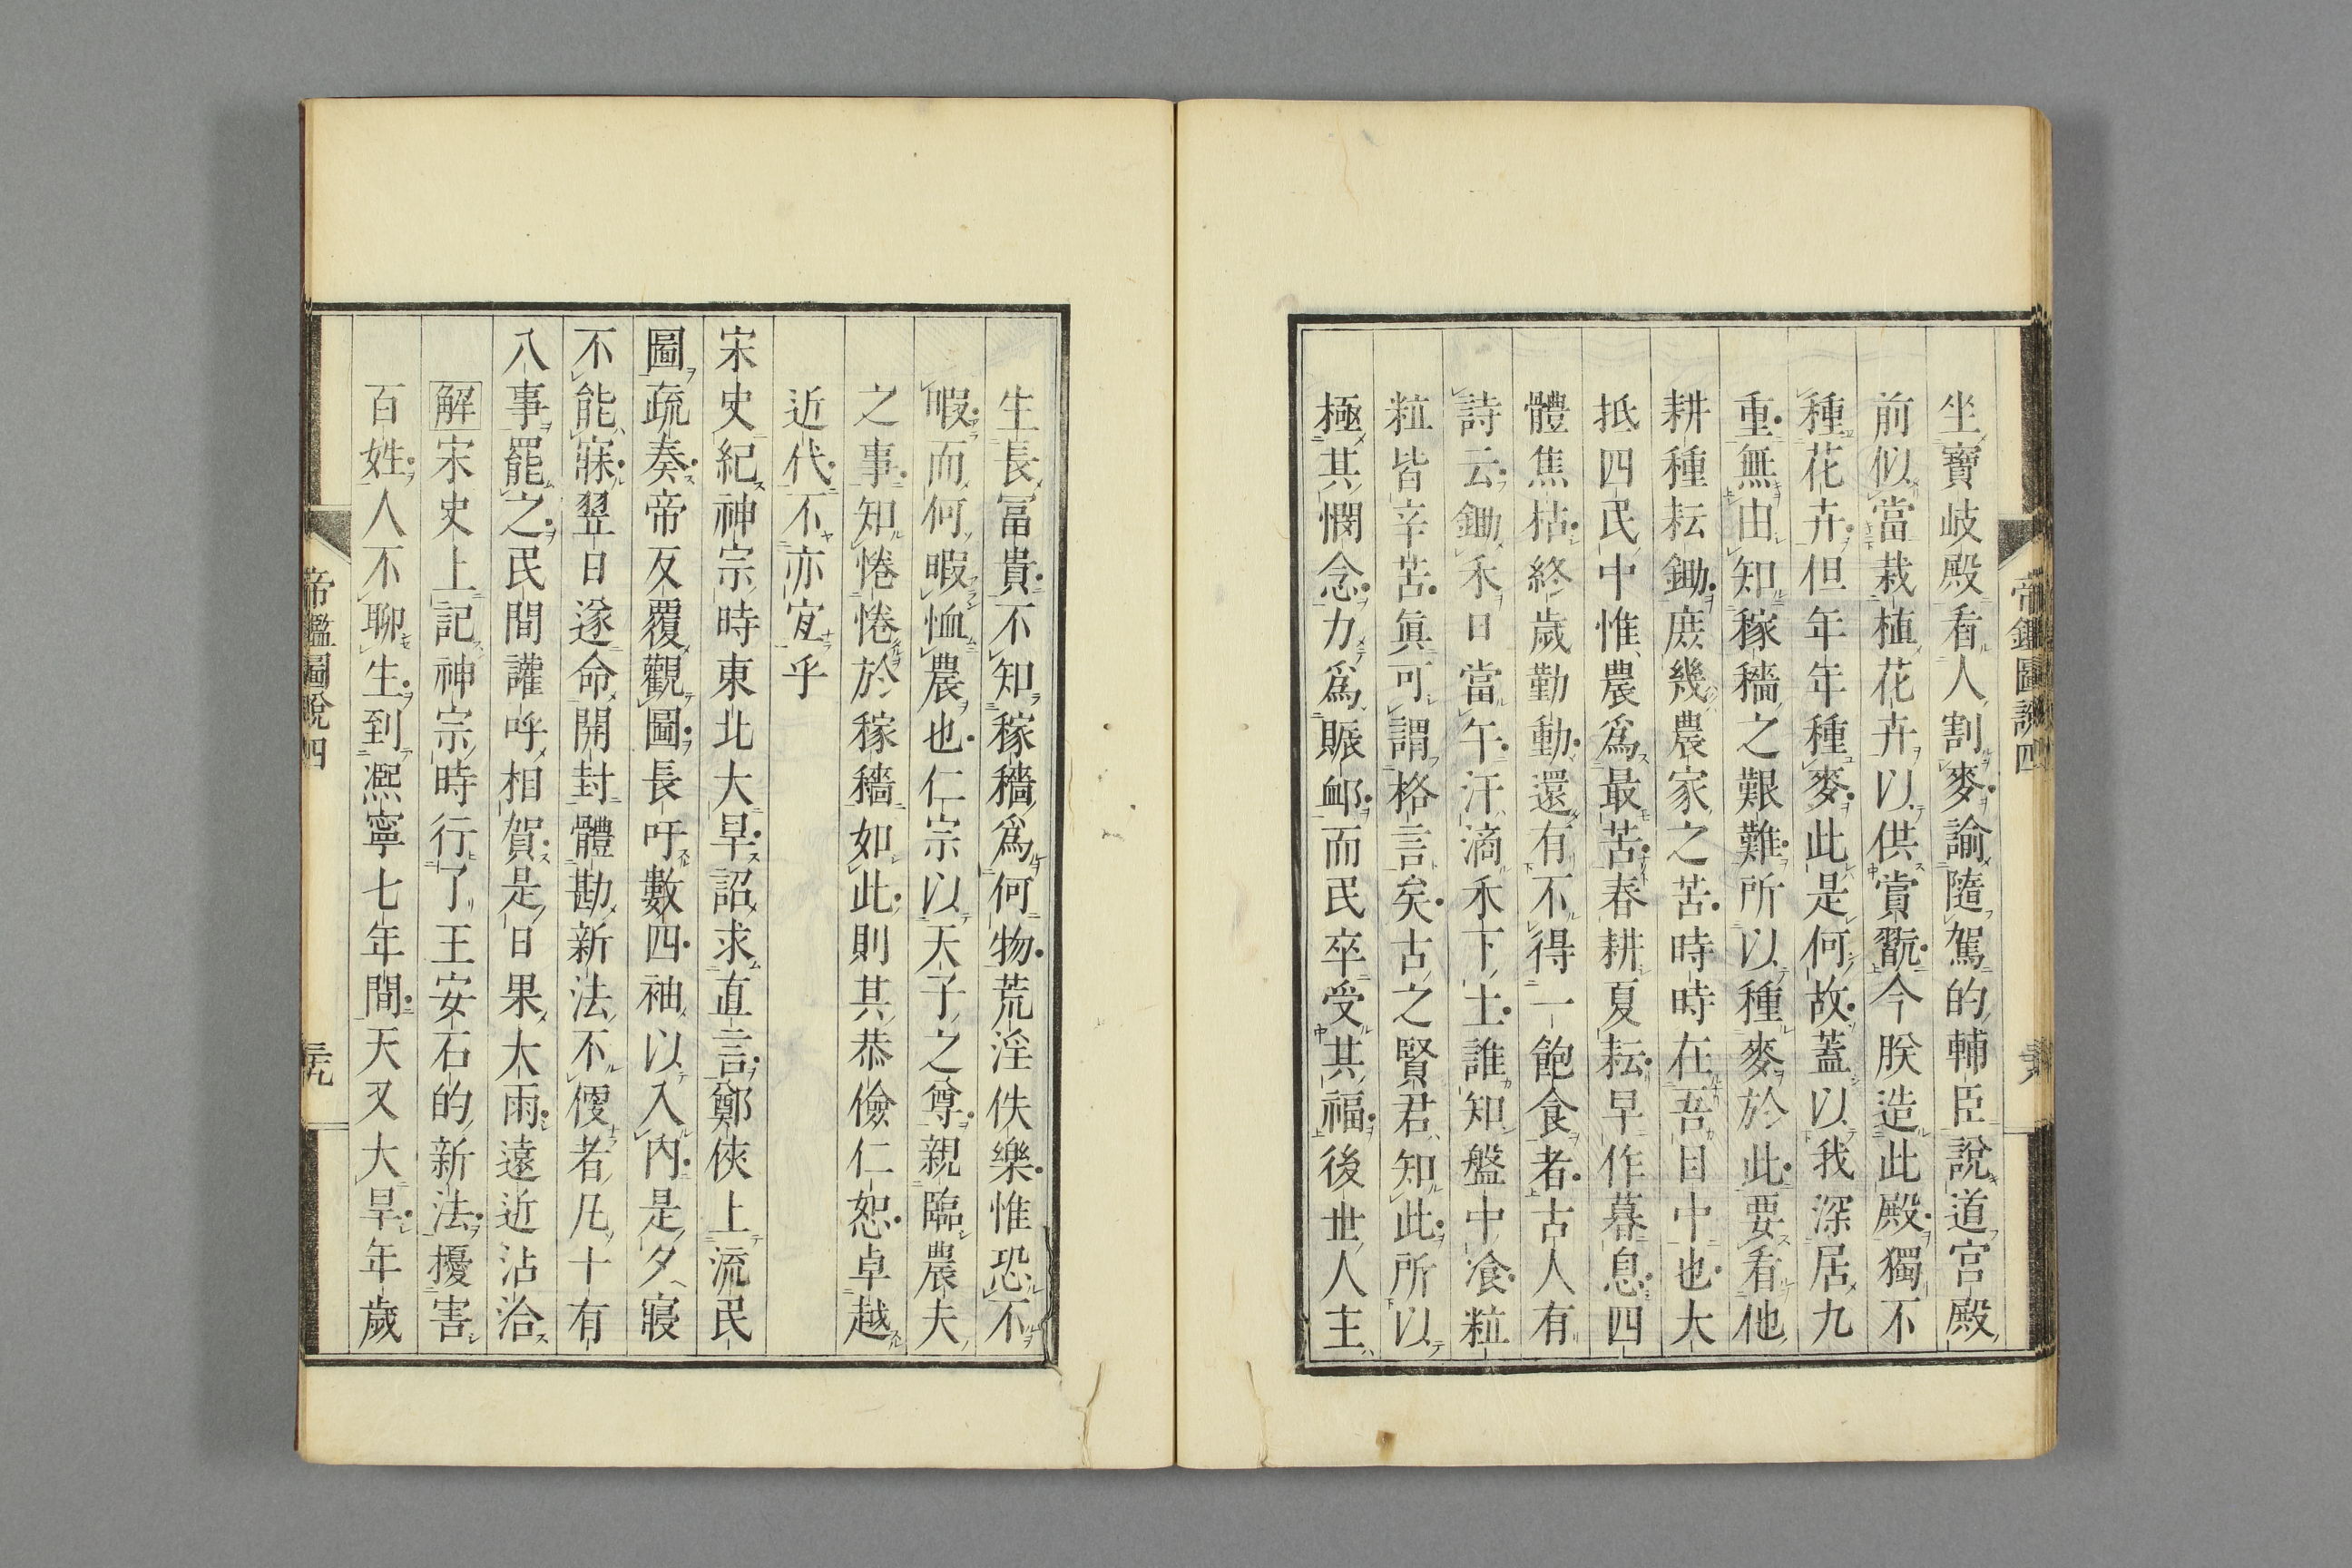 帝鑑圖說四
坐寶岐殿看人割麥諭隨駕的輔臣說道宮殿
前似當栽植花卉以供賞翫今朕造此殿獨不
種花卉但年年種麥此是何故蓋以我深居九
重無由知稼穡之艱難所以種麥於此要看他
耕種耘鋤庶幾農家之苦時時在吾目中也大
抵四民中惟農爲最苦春耕夏耘早作暮息四
體焦枯終歲勤動還有不得一飽食者古人有
詩云鋤禾日當午汗滴禾下土誰知盤中飡粒
粒皆辛苦眞可謂格言矣古之賢君知此所以
極其憫念力爲賑卹而民卒受其福後世人主
生長冨貴不知稼穡爲何物荒淫佚樂惟恐不
暇而何暇恤農也仁宗以天子之尊親臨農夫
之事知惓惓於稼穡如此則其恭儉仁恕卓越
近代不亦宜乎
宋史紀神宗時東北大旱詔求直言鄭俠上流民
圖疏奏帝反覆觀圖長吁數四袖以入內是夕寢
不能寐翌日遂命開封體勘新法不便者凡十有
八事罷之民間讙呼相賀是日果大雨遠近沾洽
解宋史上記神宗時行了王安石的新法擾害
百姓人不聊生到凞寧七年間天又大旱年歲
帝鑑圖說四